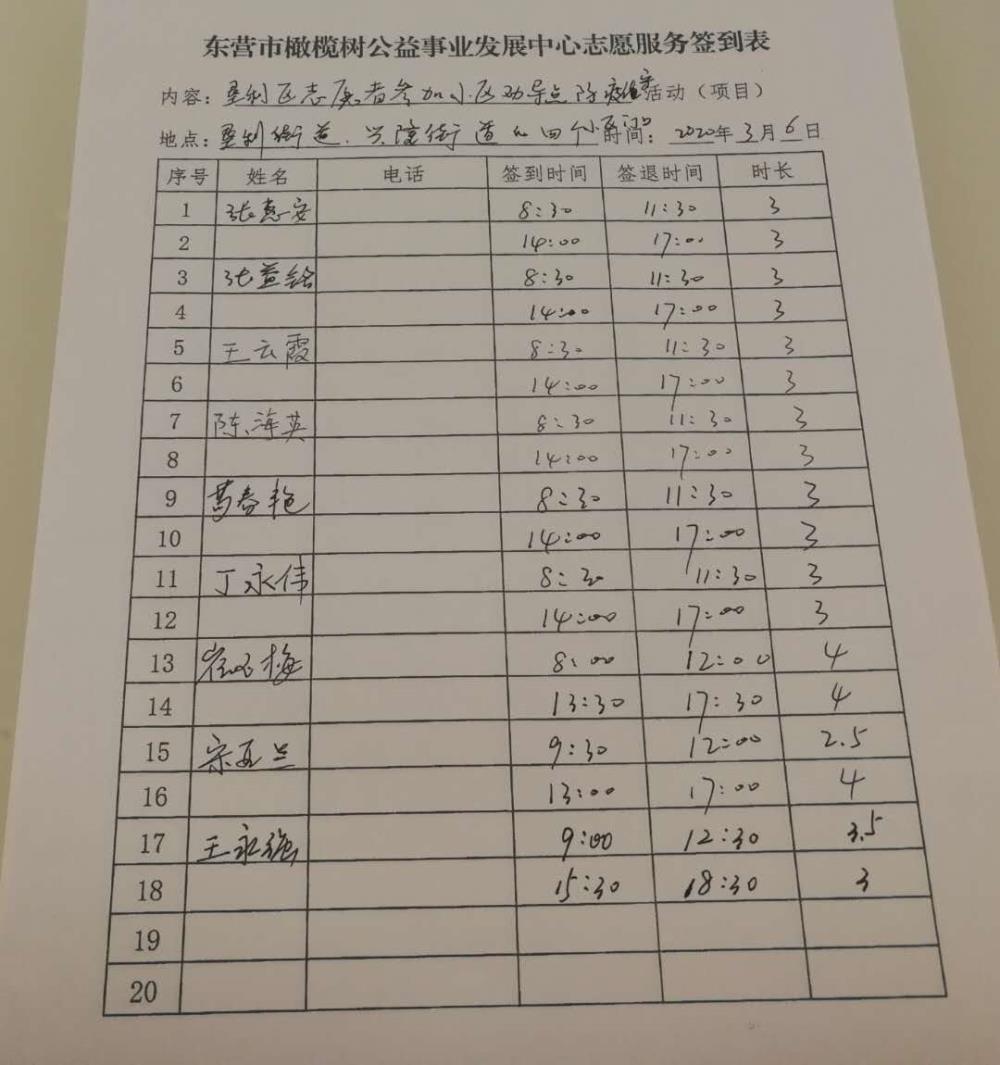 东营市橄榄树公益事业发展中心志愿服务签到表
内容：垦利区志愿者参加小区劝导点防疫 活动（项目）
地点：垦利街道、兴隆街道的四个小区 时间：2020年3月6日
序号 姓名 电话 签到时间 签退时间 时长
1 张惠安 8:30 11:30 3
2 14:00 17:00 3
3 张益铭 8:30 11:30 3
4 14:00 17:00 3
5 王云霞 8:30 11:30 3
6 14:00 17:00 3
7 陈海英 8:30 11:30 3
8 14:00 17:00 3
9 葛春艳 8:30 11:30 3
10 14:00 17:00 3
11 丁永伟 8:30 11:30 3
12 14:00 17:00 3
13 崔 梅 8:00 12:00 4
14 13:30 17:30 4
15 宋 兰 9:30 12:00 2.5
16 13:00 17:00 4
17 王永强 9:00 12:30 3.5
18 15:30 18:30 3
19
20